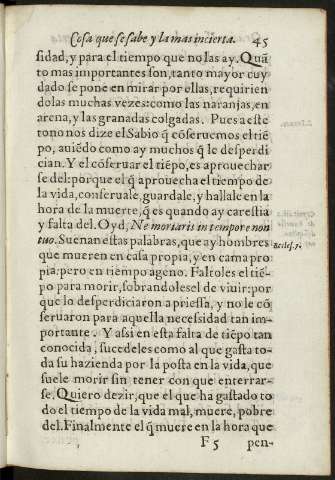 Cosa que se sabe y la mas incierta. 45
sidad, y para el tiempo que no las ay. Quã
to mas importantes son, tanto mayor cuy
dado se pone en mirar por ellas, requirien
dolas muchas vezes: como las naranjas, en
arena, y las granadas colgadas. Pues a este
tono nos dize el Sabio q̃ cõseruemos el tiẽ
po, auiẽdo como ay muchos q̃ le desperdi
cian. Y el cõseruar el tiẽpo, es aprouechar
se del: porque el q̃ aprouecha el tiempo de
la vida, conseruale, guardale, y hallale en la
hora de la muerte, q̃ es quando ay carestia
y falta del. Oyd, Ne moriaris in tempore non
tuo. Suenan estas palabras, que ay hombres
Eccles. 7.
que mueren en casa propia, y en cama pro
pia: pero en tiempo ageno. Faltoles el tiẽ-
po para morir, sobrandolesel de viuir: por
que lo desperdiciaron a priessa, y no le cõ
seruaron para aquella necessidad tan im-
portante. Y assi en esta falta de tiẽpo tan
conocida, sucedeles como al que gasta to-
da su hazienda por la posta en la vida, que
suele morir sin tener con que enterrar-
se. Quiero dezir, que el que ha gastado to
do el tiempo de la vida mal, muere, pobre
del. Finalmente el q̃ muere en la hora que
F 5 pen-